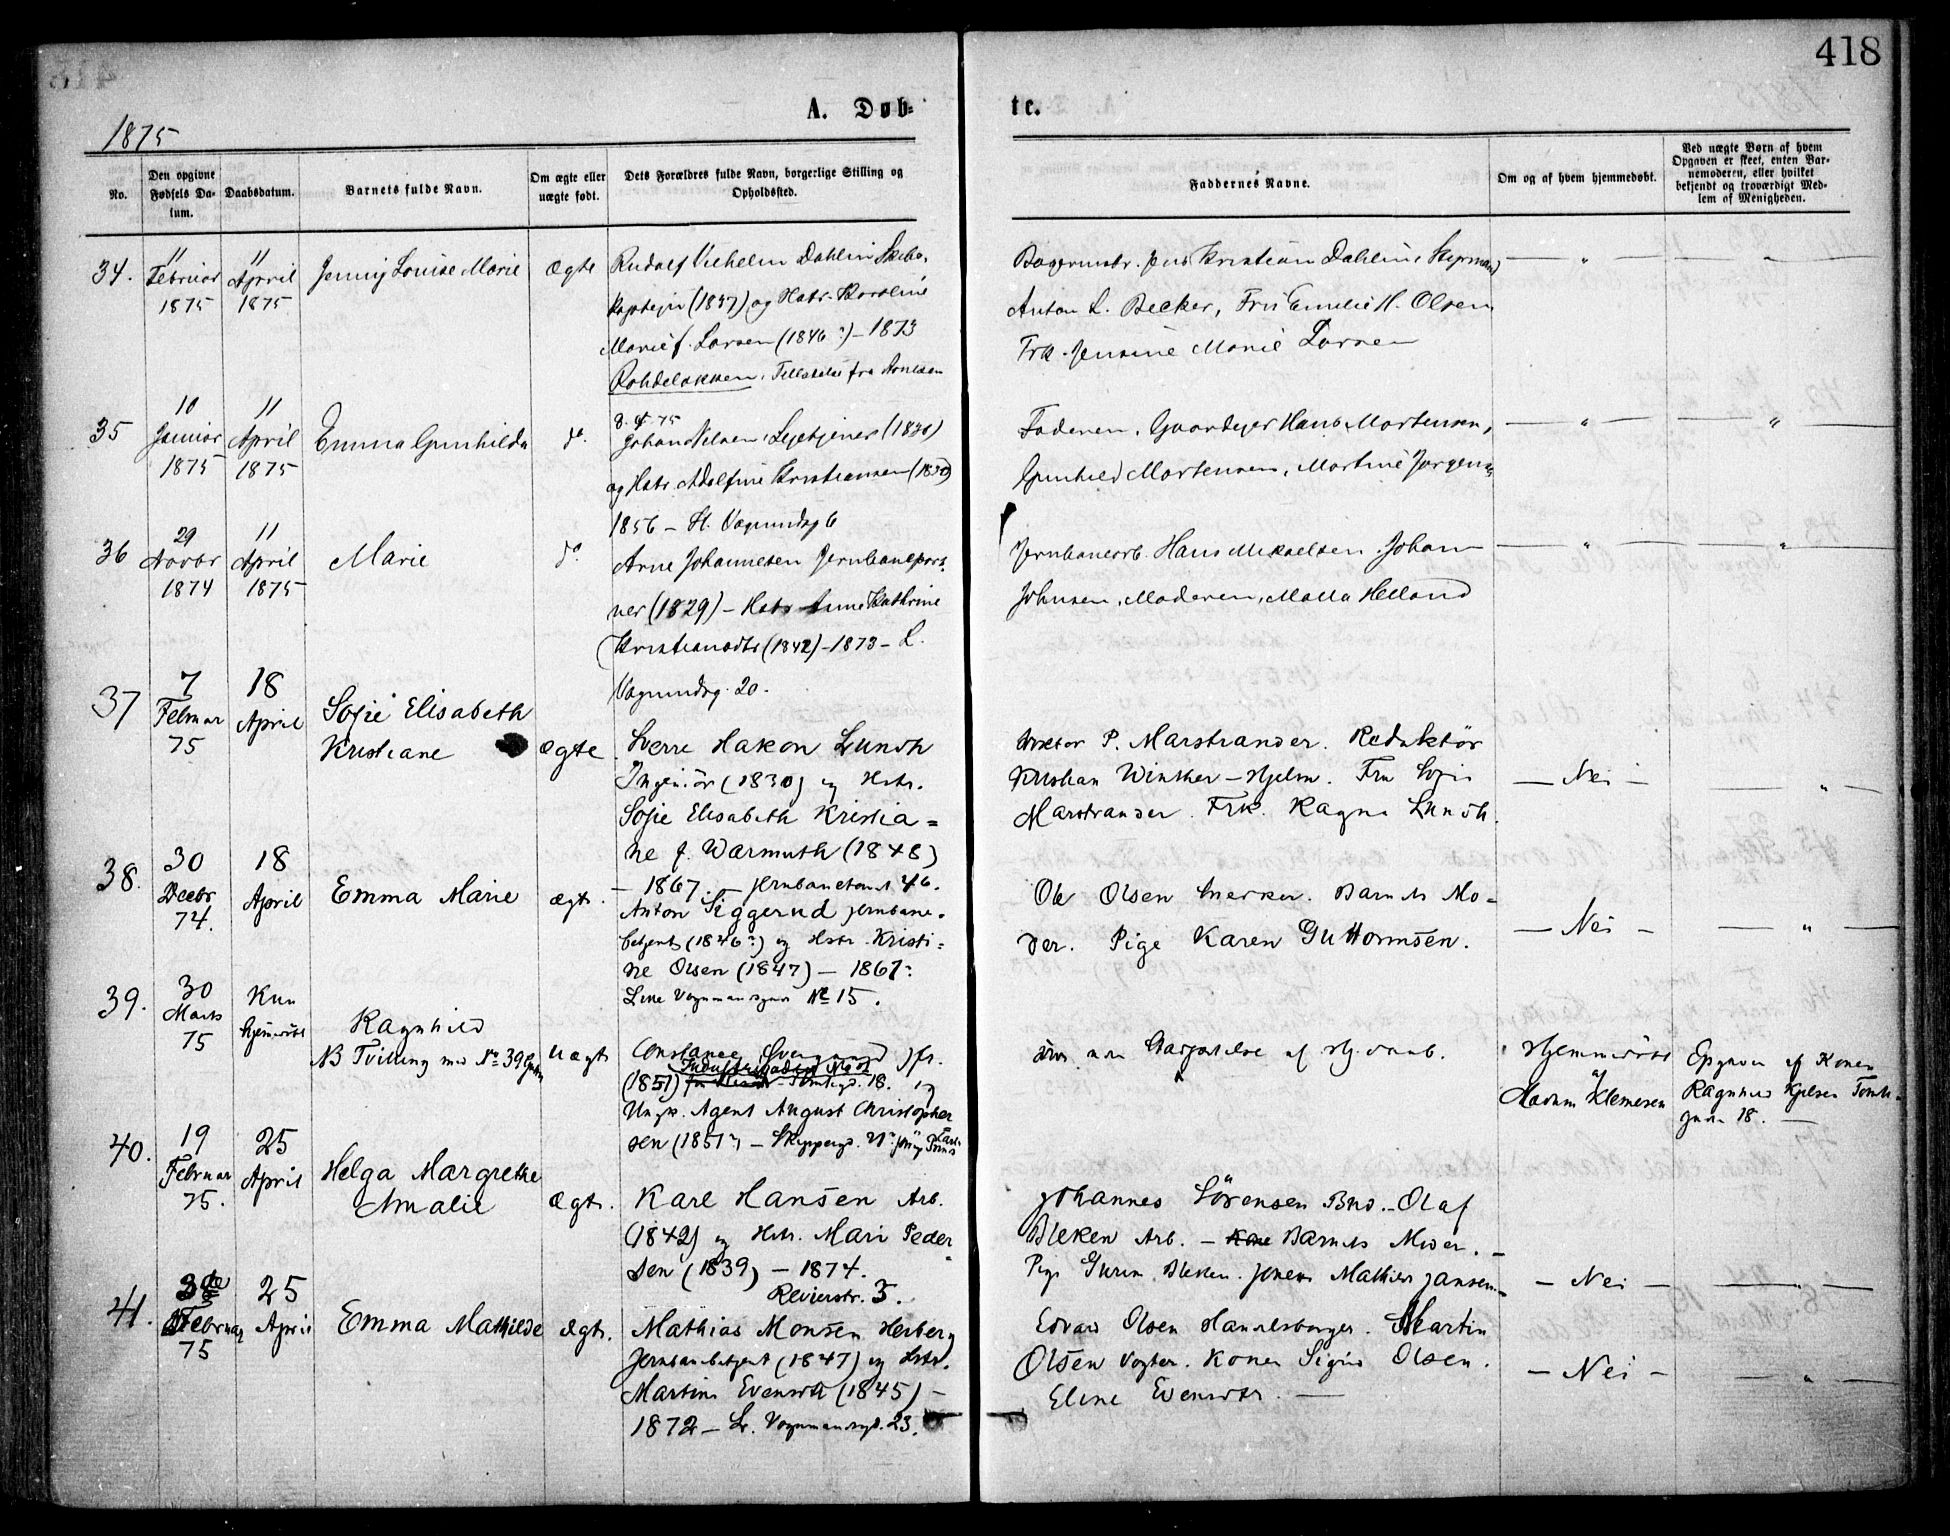 418
A. Døb=
te.
1875
No.
Den opgivne Fødsels Datum.
Daabsdatum.
Barnets fulde Navn.
Om ægte eller uægte født.
Dets Forældres fulde Navn, borgerlige Stilling og Opholdssted.
Faddernes Navne.
Om og af hvem hjemmedøbt.
Ved uægte Børn af hvem
Opgaven er skeet, enten Bar-
nemoderen, eller hvilket
bekjendt og troværdigt Med-
lem af Menigheden.
34.
11
Februar
1875
11
April
1875
Jenny Louise Marie
ægte
Rudolf Vilhelm Dahlin Skibs-
kaptejn (1837) og Hstr. Karoline
Marie f. Larsen (1846?) – 1873
Rohdeløkken. Tilladelse fra
Jens Kristian Dahlin, Styrmand
Anton L. Becker, Fru Emilie H. Olsen
Frk. Jensine Marie Larsen
35
10
Januar
1875
11
April
1875
Emma Gunhilda
do.
8. 4 75
Johan Nilsen, Lejetjener (1830)
og Hstr. Adolfine Kristiansen (1830)
1856 – St. Vognmdsg 6
Faderen, Gaardejer Hans Mortensen,
Gunhild Mortensen, Martine
36
29
Novbr
1874
11
April
1875
Marie
do
Arne Johannesen Jernbanepors-
ner (1829) – Hstr Anne Kathrine
Kristiansdtr (1842) – 1873 – L.
Vognmdsg. 20.
Jernbanearb. Hans Mikaelsen. Johan
Johnsen, Moderen, Malla Helland
37
7
Februar
75
18
April
Sofie Elisabeth
Kristiane
ægte
Sverre Hakon Lundh
Ingeniør (1830) og Hstr.
Sofie Elisabeth Kristia=
ne f. Warmuth (1848)
– 1867. – Jernbanetomt 46.
P. Marstrander. Redaktör
Kristian Winther-Hjelm. Fru Sofie
Marstrander. Frk. Ragna Lundh.
– Nei –
38.
30
Decbr
74.
18
April
Emma Marie
ægte.
Anton Siggerud Jernbane-
betjent (1846?) og Hstr. Kristi=
ne Olsen (1847) – 1867?
Lille Vognmandsgade No 15.
Ole Olsen Snekker. Barnets Mo=
der. Pige Karen Guttormsen.
– Nei –
39.
30
Marts
75
Kun
hjemdøbt
Ragnhild
NB Tvilling med No 39
Uægte
Constance Svensrud Jfr.
(1851) Tomtegd. 18. og
Ungk. Agent August Christopher
sen (1851?) – Skippergd.
af Hj. daab.
Hjemmedøbt
af
Madam Klemesen
Opgaven af Konen
Ragnhild Kjelsen Tomte-
gaden 18.
40.
19
Februar
75.
25
April
Helga Margrethe
Amalie
ægte.
Karl Hansen Arb.
(1842) og Hstr. Mari Peder
sen (1839) – 1874.
Revierstr. 3.
Johannes Sörensen Bud. – Olaf
Bleken Arb. – Barnets Moder. –
Pige Gurin Bleken. Jonas Mathias Jansen
– Nei –
41.
Februar
75
25
April
Emma Mathilde
ægte.
Mathias Monsen Herberg
Jernbanebetjent (1847) og Hstr.
Martine Evensdtr (1845) –
1872 – L. Vognmandsgd. 23.
Edvard Olsen Handelsborger. Martin
Olsen Vogter. Konen Signe Olsen.
Eline Evensdtr. –
– Nei –